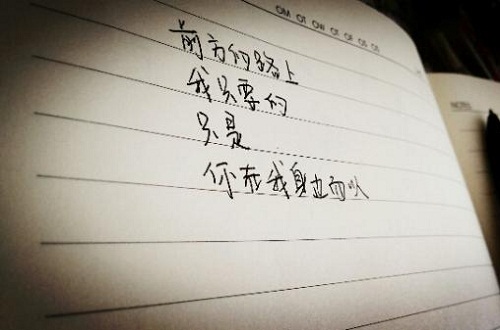 OM OT OW OT OF OS OS
前方的路上
我只要的
只是
你在我身边而以